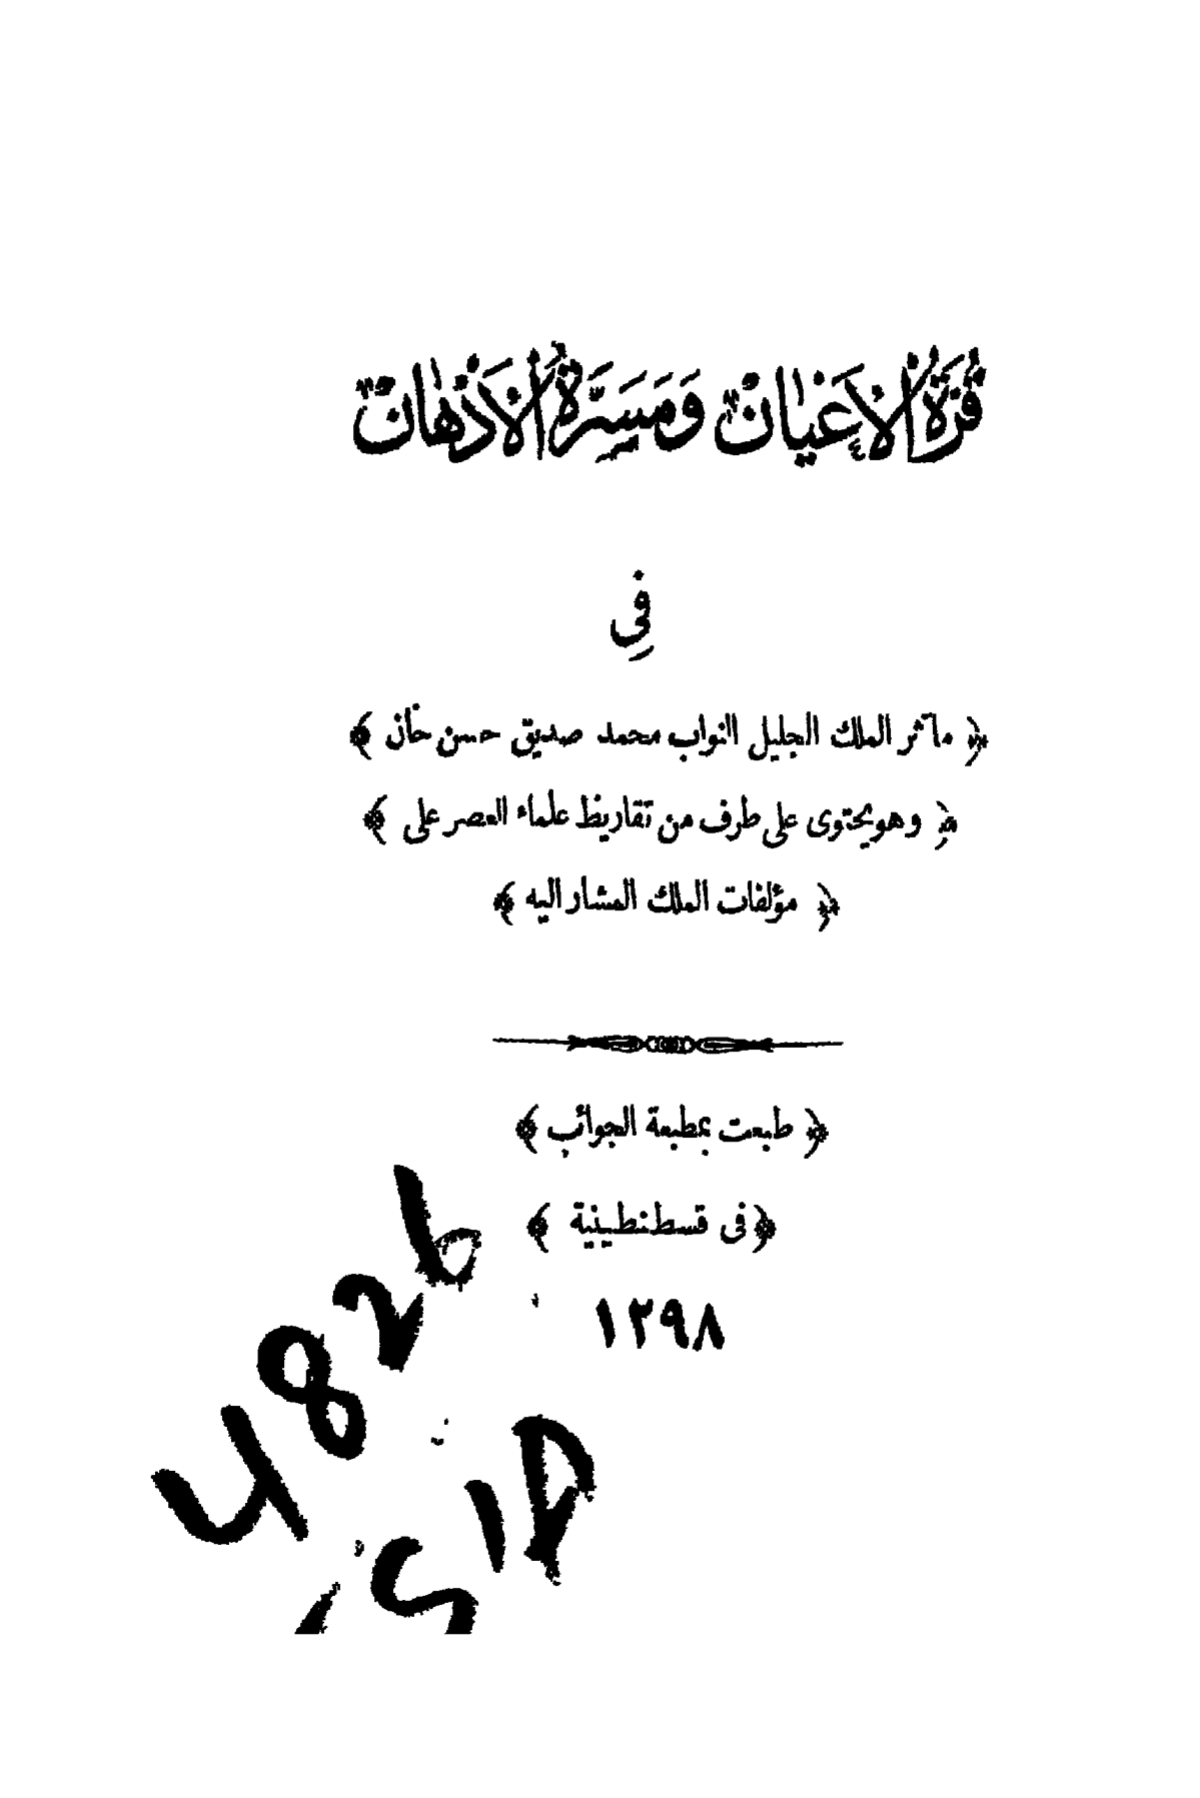 قُرَّةُ الْأَعْيَانْ وَمَسَرَّةُ الْأَذْهَانْ
فِى
﴿ مآثر الملك الجليل النواب محمد صديق حسن خان ﴾
﴿ وهو يحتوى على طرف من تقاريظ علماء العصر على ﴾
﴿ مؤلفات الملك المشار اليه ﴾
﴿ طبعت بمطبعة الجوائب ﴾
﴿ فى قسطنطينية ﴾
١٢٩٨
4826